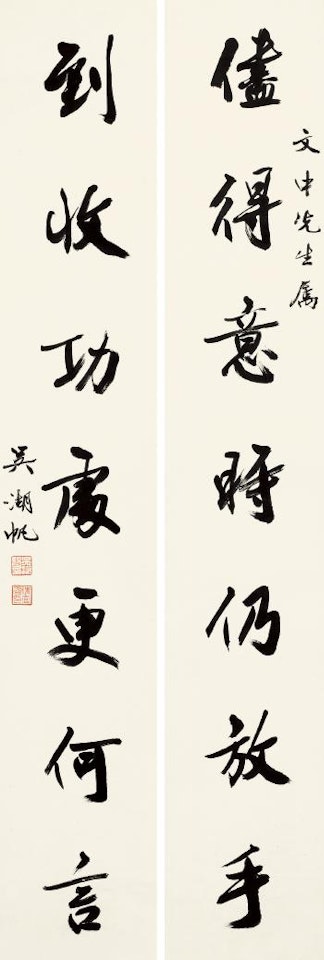 文中先生属
儘得意時仍放手
到收功處更何言
吳湖帆